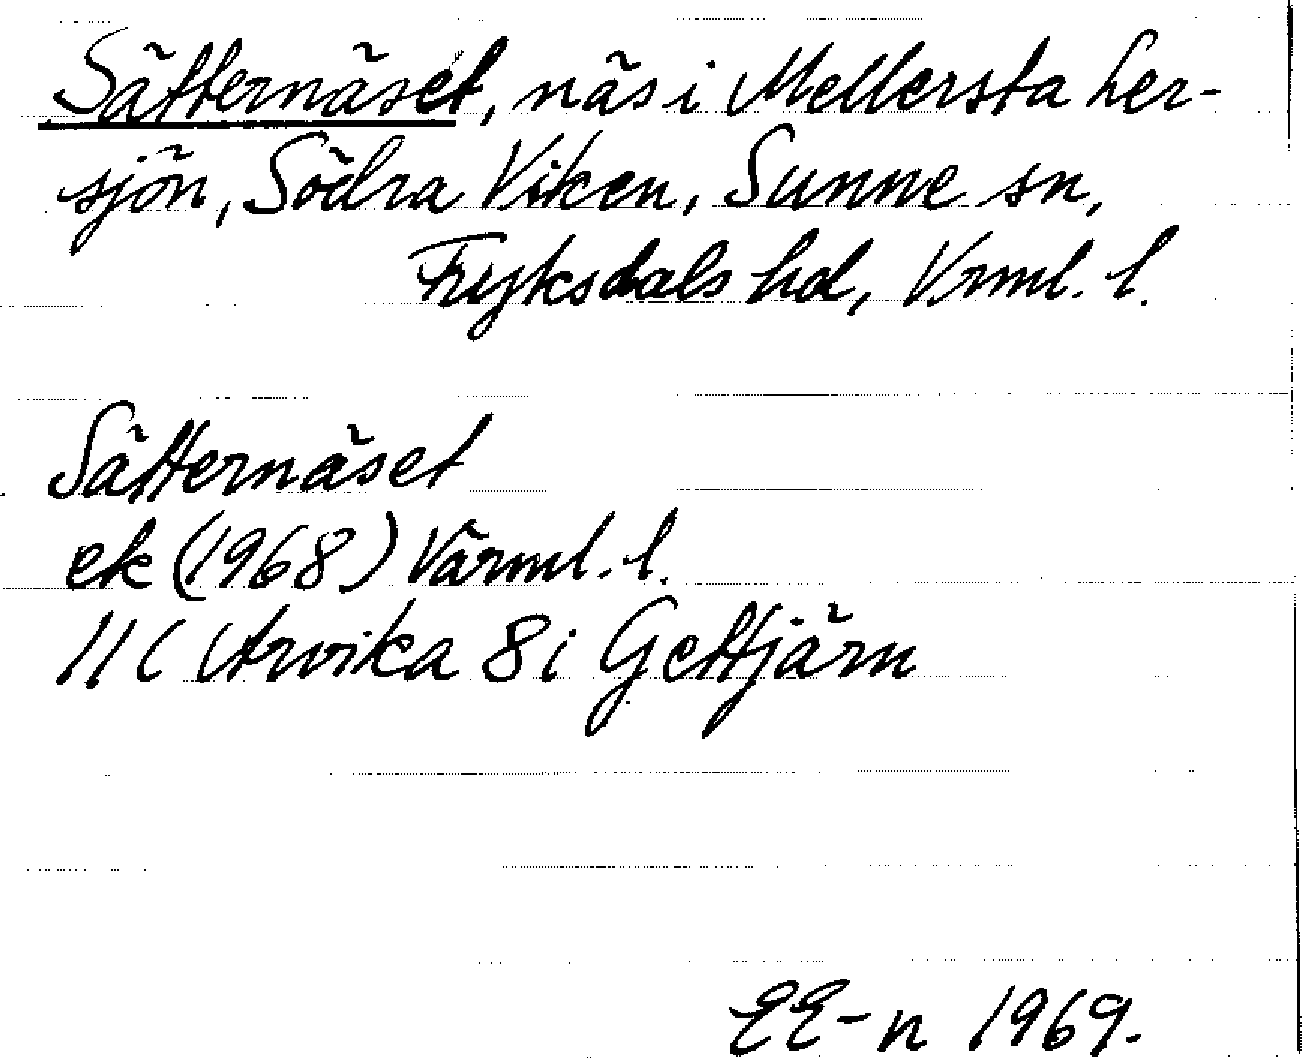 Sätternäset, näs i Mellersta Ler-
sjön, Södra Viken, Sunne sn,
Fryksdals hd, Vrml. l.
Sätternäset
ek (1968) Värml. l.
11C Arvika 8i Gettjärn
EE-n 1969.